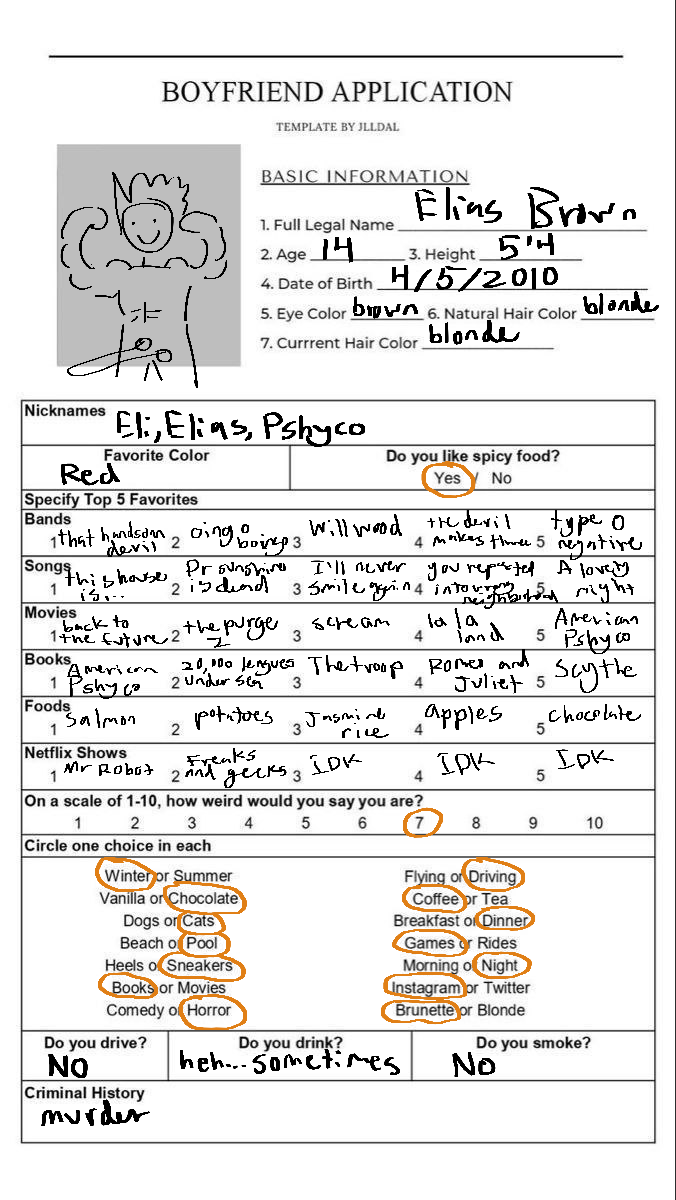 BOYFRIEND APPLICATION
TEMPLATE BY JLLDAL
BASIC INFORMATION
1. Full Legal Name Elias Brown
2. Age 14 3. Height 5'4
4. Date of Birth 4/5/2010
5. Eye Color brown 6. Natural Hair Color blonde
7. Currrent Hair Color blonde
Nicknames Eli, Elias, Pshyco
Favorite Color Do you like spicy food?
Red Yes / No
Specify Top 5 Favorites
Bands
1 that handsom devil 2 oingo boingo 3 Will wood 4 the devil makes three 5 type O negative
Songs
1 this house is... 2 Dr sunshine is dead 3 I'll never smile again 4 you repeated into my neighborhood 5 A lovely night
Movies
1 back to the future 2 the purge 2 3 scream 4 la la land 5 American Pshyco
Books
1 American Pshyco 2 20,000 leugues under sea 3 The troop 4 Romeo and Juliet 5 Scythe
Foods
1 Salmon 2 potatoes 3 Jasmine rice 4 apples 5 chocolate
Netflix Shows
1 Mr Robot 2 Freaks and geeks 3 IDK 4 IDK 5 IDK
On a scale of 1-10, how weird would you say you are?
1 2 3 4 5 6 7 8 9 10
Circle one choice in each
Winter or Summer Flying or Driving
Vanilla or Chocolate Coffee or Tea
Dogs or Cats Breakfast or Dinner
Beach or Pool Games or Rides
Heels or Sneakers Morning or Night
Books or Movies Instagram or Twitter
Comedy or Horror Brunette or Blonde
Do you drive? Do you drink? Do you smoke?
No heh...sometimes No
Criminal History
murder